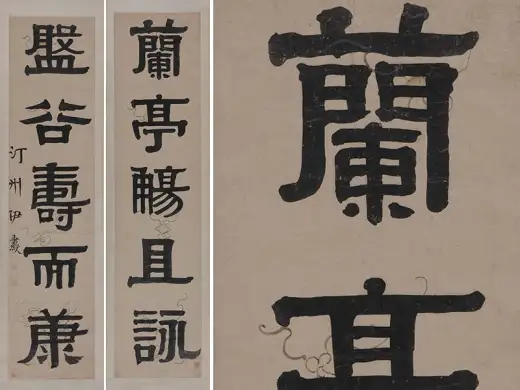 蘭亭觴且詠
盤谷壽而康
汀州伊
蘭亭